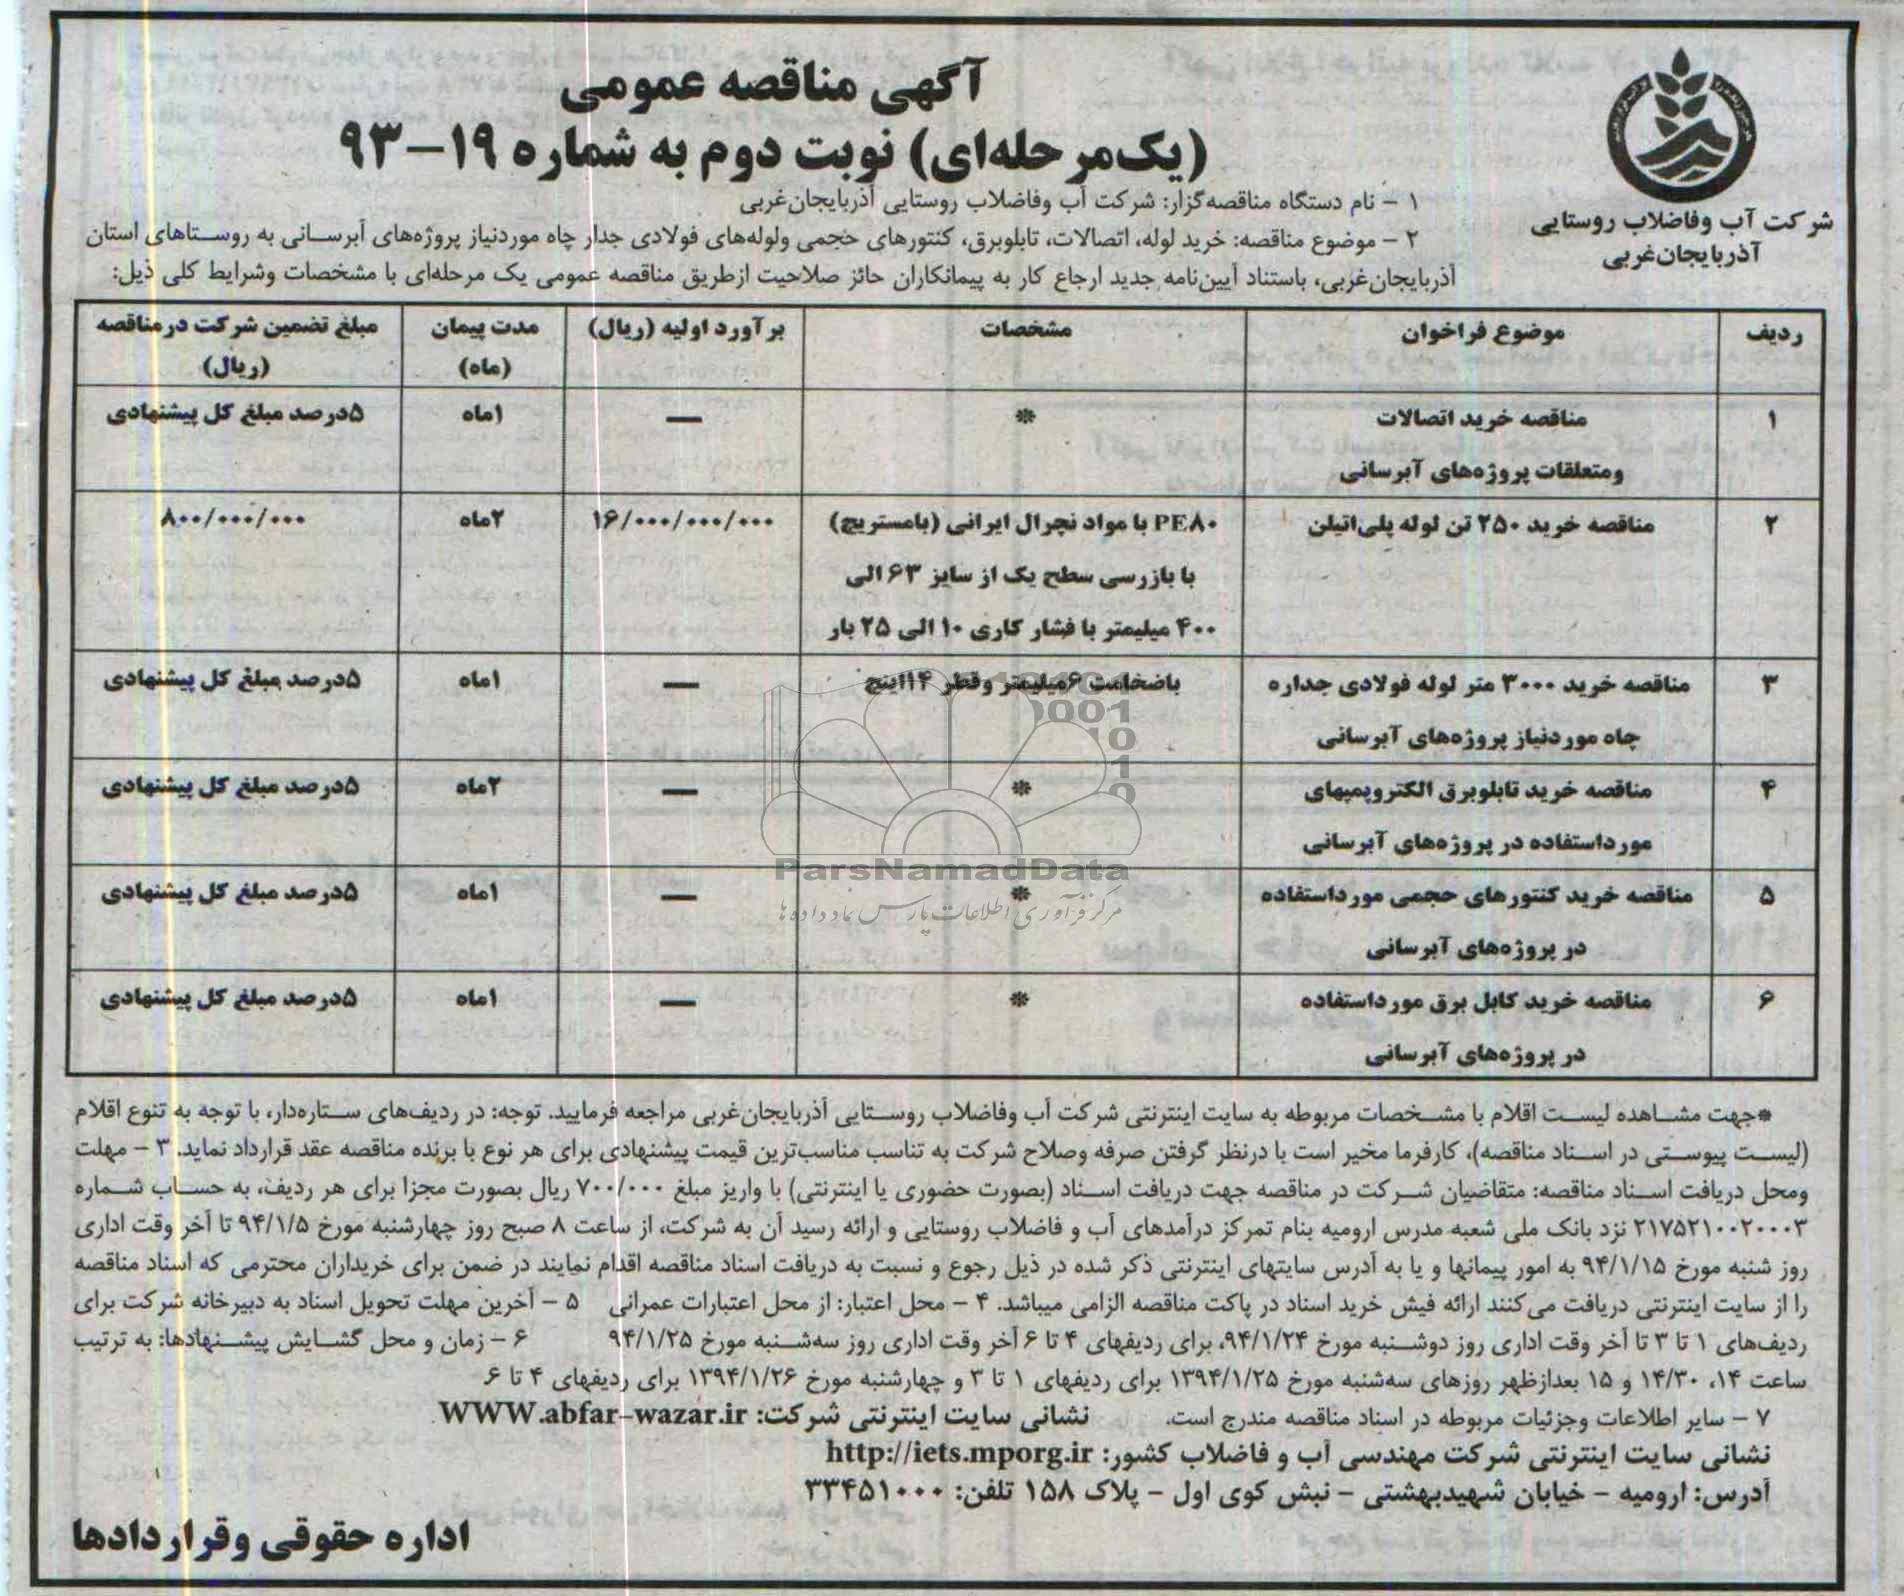 آگهی مناقصه عمومی
(یک‌مرحله‌ای) نوبت دوم به شماره ۱۹-۹۳
شرکت آب وفاضلاب روستایی
آذربایجان‌غربی
۱ - نام دستگاه مناقصه‌گزار: شرکت آب وفاضلاب روستایی آذربایجان‌غربی
۲ - موضوع مناقصه: خرید لوله، اتصالات، تابلوبرق، کنتورهای حجمی ولوله‌های فولادی جدار چاه موردنیاز پروژه‌های آبرسانی به روستاهای استان
آذربایجان‌غربی، باستناد آیین‌نامه جدید ارجاع کار به پیمانکاران حائز صلاحیت ازطریق مناقصه عمومی یک مرحله‌ای با مشخصات وشرایط کلی ذیل:
ردیف موضوع فراخوان مشخصات برآورد اولیه (ریال) مدت پیمان مبلغ تضمین شرکت درمناقصه
(ماه) (ریال)
۱ مناقصه خرید اتصالات * — ۱ماه ۵درصد مبلغ کل پیشنهادی
ومتعلقات پروژه‌های آبرسانی
۲ مناقصه خرید ۲۵۰ تن لوله پلی‌اتیلن PE۸۰ با مواد نچرال ایرانی (بامستربچ) ۱۶/۰۰۰/۰۰۰/۰۰۰ ۲ماه ۸۰۰/۰۰۰/۰۰۰
با بازرسی سطح یک از سایز ۶۳ الی
۴۰۰ میلیمتر با فشار کاری ۱۰ الی ۲۵ بار
۳ مناقصه خرید ۳۰۰۰ متر لوله فولادی جداره باضخامت ۶میلیمتر وقطر ۱۴اینچ — ۱ماه ۵درصد مبلغ کل پیشنهادی
چاه موردنیاز پروژه‌های آبرسانی
۴ مناقصه خرید تابلوبرق الکتروپمپهای * — ۲ماه ۵درصد مبلغ کل پیشنهادی
مورداستفاده در پروژه‌های آبرسانی
۵ مناقصه خرید کنتورهای حجمی مورداستفاده * — ۱ماه ۵درصد مبلغ کل پیشنهادی
در پروژه‌های آبرسانی
۶ مناقصه خرید کابل برق مورداستفاده * — ۱ماه ۵درصد مبلغ کل پیشنهادی
در پروژه‌های آبرسانی
ParsNamadData
مرکز فرآوری اطلاعات پارس نماد داده ها
*جهت مشاهده لیست اقلام با مشخصات مربوطه به سایت اینترنتی شرکت آب وفاضلاب روستایی آذربایجان‌غربی مراجعه فرمایید. توجه: در ردیف‌های ستاره‌دار، با توجه به تنوع اقلام
(لیست پیوستی در اسناد مناقصه)، کارفرما مخیر است با درنظر گرفتن صرفه وصلاح شرکت به تناسب مناسب‌ترین قیمت پیشنهادی برای هر نوع با برنده مناقصه عقد قرارداد نماید. ۳ - مهلت
ومحل دریافت اسناد مناقصه: متقاضیان شرکت در مناقصه جهت دریافت اسناد (بصورت حضوری یا اینترنتی) با واریز مبلغ ۷۰۰/۰۰۰ ریال بصورت مجزا برای هر ردیف، به حساب شماره
۲۱۷۵۲۱۰۰۲۰۰۰۳ نزد بانک ملی شعبه مدرس ارومیه بنام تمرکز درآمدهای آب و فاضلاب روستایی و ارائه رسید آن به شرکت، از ساعت ۸ صبح روز چهارشنبه مورخ ۹۴/۱/۵ تا آخر وقت اداری
روز شنبه مورخ ۹۴/۱/۱۵ به امور پیمانها و یا به آدرس سایتهای اینترنتی ذکر شده در ذیل رجوع و نسبت به دریافت اسناد مناقصه اقدام نمایند در ضمن برای خریداران محترمی که اسناد مناقصه
را از سایت اینترنتی دریافت می‌کنند ارائه فیش خرید اسناد در پاکت مناقصه الزامی میباشد. ۴ - محل اعتبار: از محل اعتبارات عمرانی ۵ - آخرین مهلت تحویل اسناد به دبیرخانه شرکت برای
ردیف‌های ۱ تا ۳ تا آخر وقت اداری روز دوشنبه مورخ ۹۴/۱/۲۴، برای ردیفهای ۴ تا ۶ آخر وقت اداری روز سه‌شنبه مورخ ۹۴/۱/۲۵ ۶ - زمان و محل گشایش پیشنهادها: به ترتیب
ساعت ۱۴، ۱۴/۳۰ و ۱۵ بعدازظهر روزهای سه‌شنبه مورخ ۱۳۹۴/۱/۲۵ برای ردیفهای ۱ تا ۳ و چهارشنبه مورخ ۱۳۹۴/۱/۲۶ برای ردیفهای ۴ تا ۶.
۷ - سایر اطلاعات وجزئیات مربوطه در اسناد مناقصه مندرج است. نشانی سایت اینترنتی شرکت: WWW.abfar-wazar.ir
نشانی سایت اینترنتی شرکت مهندسی آب و فاضلاب کشور: http://iets.mporg.ir
آدرس: ارومیه - خیابان شهیدبهشتی - نبش کوی اول - پلاک ۱۵۸ تلفن: ۳۳۴۵۱۰۰۰
اداره حقوقی وقراردادها